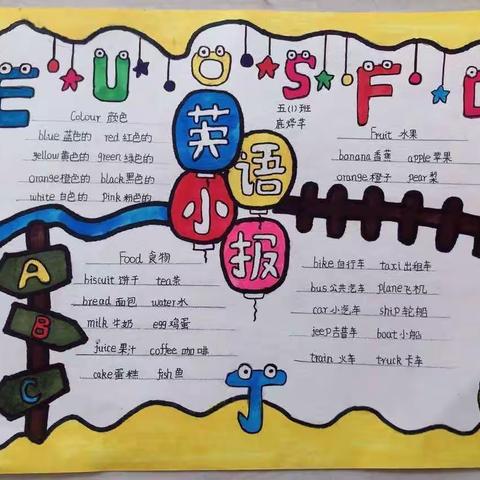 E U O S F
Colour 颜色
blue 蓝色的 red 红色的
yellow 黄色的 green 绿色的
orange 橙色的 black 黑色的
white 白色的 Pink 粉色的
英语小报
五(1)班
Fruit 水果
banana 香蕉 apple 苹果
orange 橙子 pear 梨
Food 食物
biscuit 饼干 tea 茶
bread 面包 water 水
milk 牛奶 egg 鸡蛋
juice 果汁 coffee 咖啡
cake 蛋糕 fish 鱼
bike 自行车 taxi 出租车
bus 公共汽车 plane 飞机
car 小汽车 ship 轮船
jeep 吉普车 boat 小船
train 火车 truck 卡车
A
B
C
J